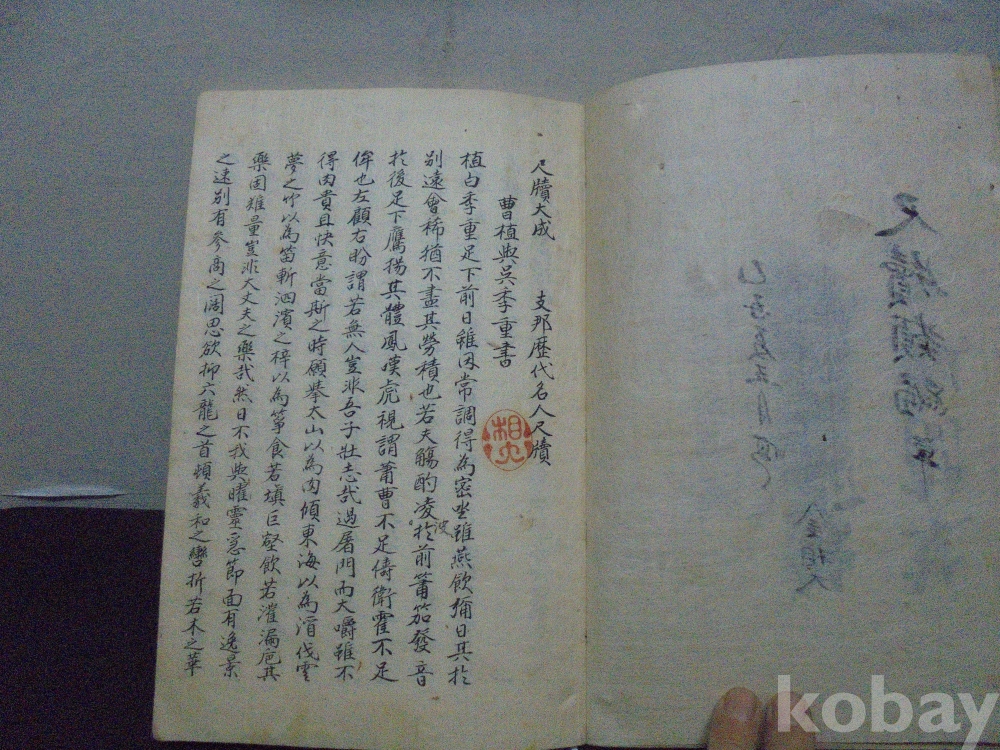 尺牘大成 支那歷代名人尺牘
曹植與吳季重書
植白季重足下前日雖因常調得為密坐雖燕飲彌日其於
別遠會稀猶不盡其勞積也若夫觴酌凌波於前簫笳發音
於後足下鷹揚其體鳳嘆虎視謂蕭曹不足儔衛霍不足
侔也左顧右盼謂若無人豈非吾子壯志哉過屠門而大嚼雖不
得肉貴且快意當斯之時願擧太山以為肉傾東海以為酒伐雲
夢之竹以為笛斬泗濱之梓以為箏食若塡巨壑飲若灌漏巵其
樂固難量豈非大丈夫之樂哉然日不我與曜靈急節面有逸景
之速別有參商之濶思欲抑六龍之首頓羲和之轡折若木之華
相大
kobay